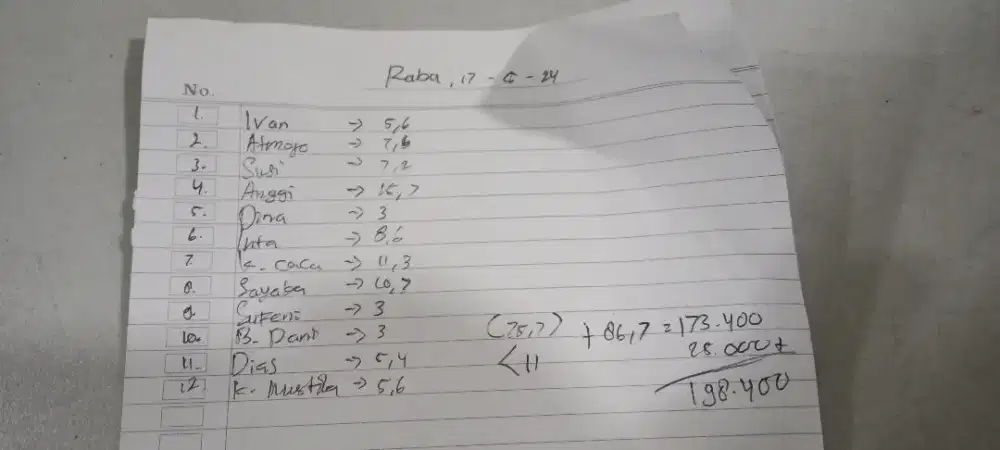 Raba, 17 - 6 - 24
No.
1. Ivan -> 5,6
2. Atmoyo -> 7,6
3. Susi -> 7,2
4. Anggi -> 15,7
5. Dina -> 3
6. -> 8,6
7. k. caca -> 11,3
8. Sayaba -> 10,7
9. -> 3
10. B. Dani -> 3
11. Dias -> 5,4
12. k. -> 5,6
+ 86,7 = 173.400
25.000 +
< 11
198.400